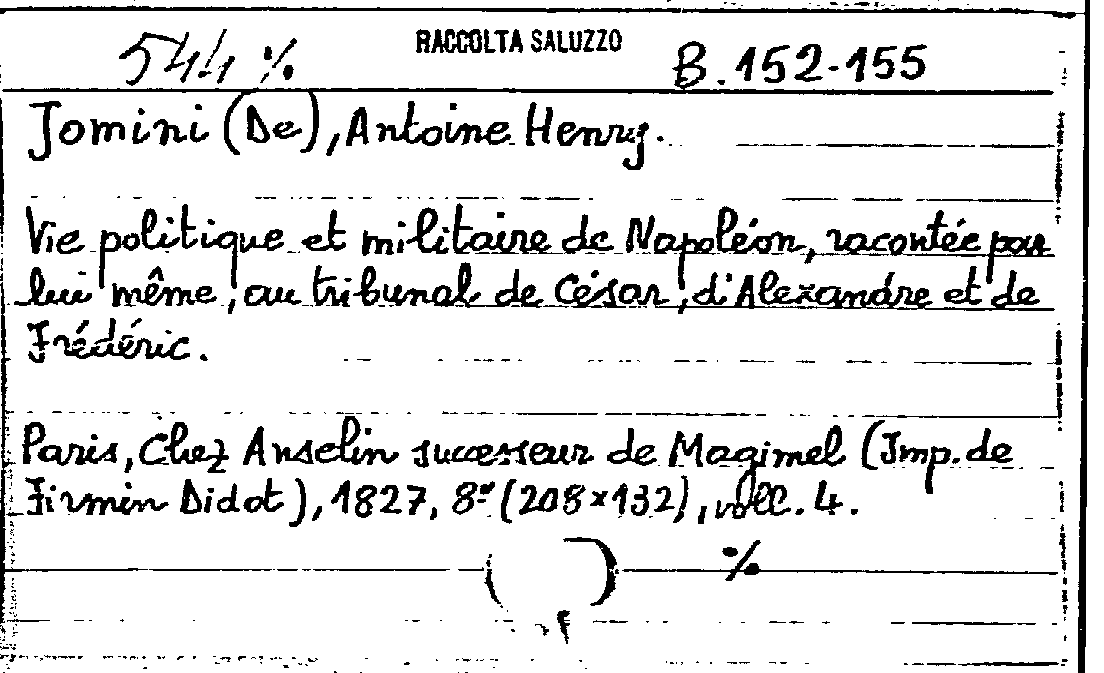 544 ./. RACCOLTA SALUZZO B.152-155
Jomini (De), Antoine Henry.
Vie politique et militaire de Napoléon, racontée par
lui même, au tribunal de César, d'Alexandre et de
Frédéric.
Paris, Chez Anselin successeur de Magimel (Imp. de
Firmin Didot), 1827, 8º (208×132), voll. 4.
./.